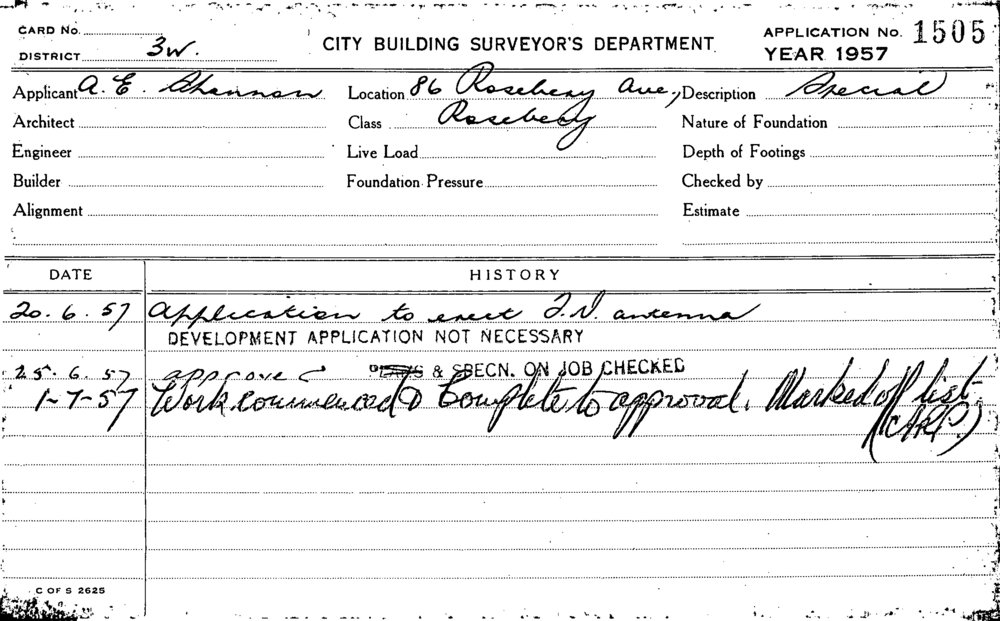 CARD No.
DISTRICT 3W.
CITY BUILDING SURVEYOR'S DEPARTMENT
APPLICATION No. 1505
YEAR 1957
Applicant A. E. Shannon Location 86 Rosebery Ave., Description Special
Architect Class Rosebery Nature of Foundation
Engineer Live Load Depth of Footings
Builder Foundation Pressure Checked by
Alignment Estimate
DATE HISTORY
20. 6. 57 Application to erect T.V. antenna
DEVELOPMENT APPLICATION NOT NECESSARY
25. 6. 57 approved PLANS & SPECN. ON JOB CHECKED
1-7-57 Work commenced & Complete to approval. Marked off list.
(CARP.)
C OF S 2625